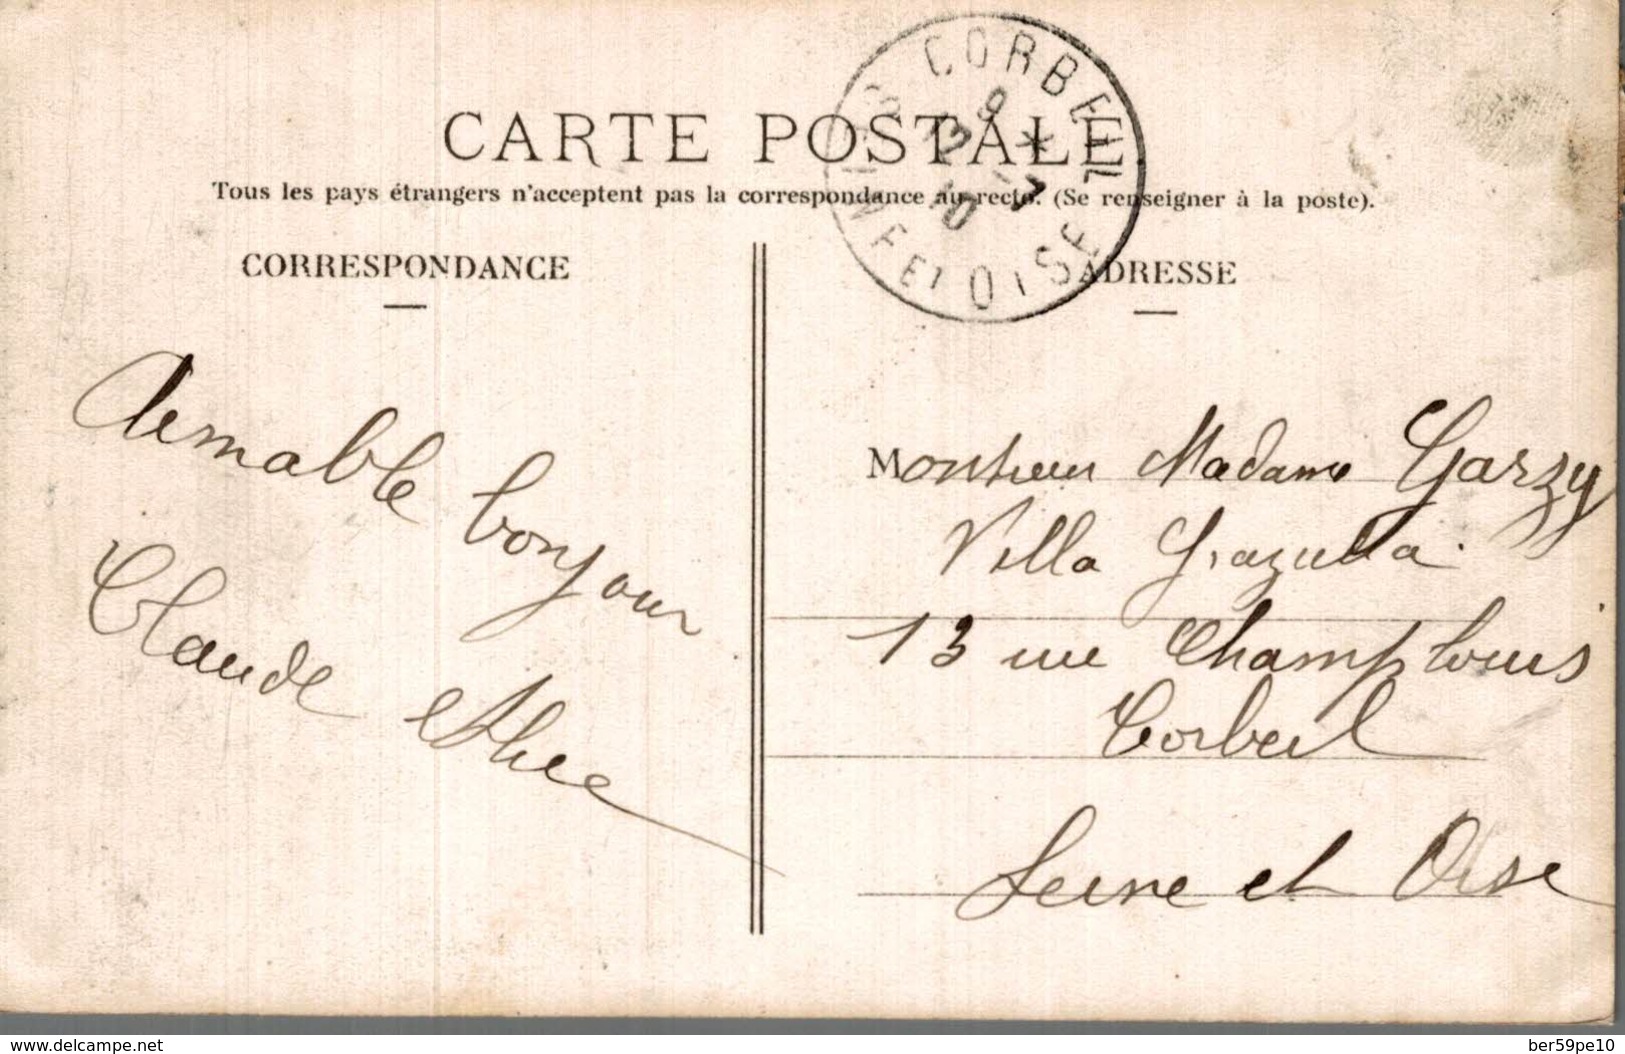 CARTE POSTALE
Tous les pays étrangers n'acceptent pas la correspondance au recto. (Se renseigner à la poste).
CORRESPONDANCE
ADRESSE
CORBEIL
SEINE ET OISE
Aimable bonjour
Claude
Monsieur Madame Garzy
Villa
13 rue Champlouis
Corbeil
Seine et Oise
www.delcampe.net
ber59pe10